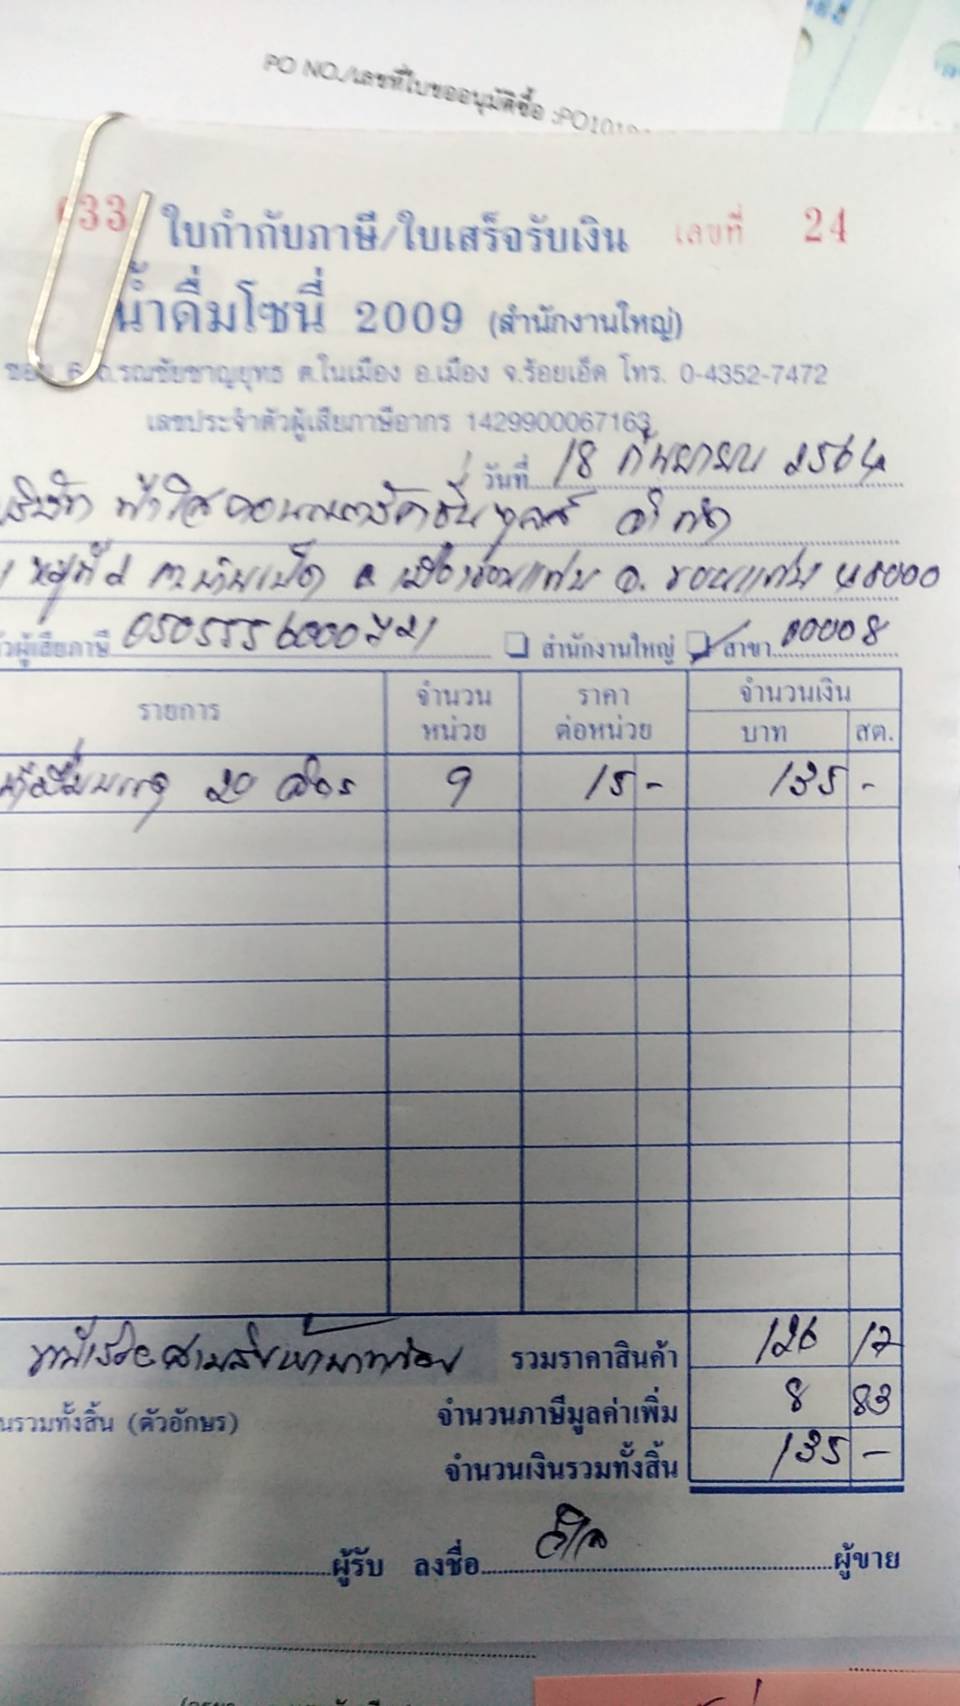 PO NO./เลขที่ใบขออนุมัติซื้อ :PO1010
33 ใบกำกับภาษี/ใบเสร็จรับเงิน เลขที่ 24
น้ำดื่มโซนี่ 2009 (สำนักงานใหญ่)
ซอย 6 ถ.รณชัยชาญยุทธ ต.ในเมือง อ.เมือง จ.ร้อยเอ็ด โทร. 0-4352-7472
เลขประจำตัวผู้เสียภาษีอากร 1429900067163
วันที่ 18 กันยายน 2564
บริษัท ฟ้าใสคอนสตรัคชั่นทูลส์ จำกัด
หมู่ที่ 2 ต.บ้านเป็ด อ.เมืองขอนแก่น จ.ขอนแก่น 40000
ตัวผู้เสียภาษี 0505556000721 สำนักงานใหญ่ สาขา 00008
รายการ จำนวนหน่วย ราคาต่อหน่วย จำนวนเงิน
บาท สต.
น้ำดื่มบรรจุ 20 ลิตร 9 15 - 135 -
หนึ่งร้อยสามสิบห้าบาทถ้วน รวมราคาสินค้า 126 17
นรวมทั้งสิ้น (ตัวอักษร) จำนวนภาษีมูลค่าเพิ่ม 8 83
จำนวนเงินรวมทั้งสิ้น 135 -
ผู้รับ ลงชื่อ ผู้ขาย